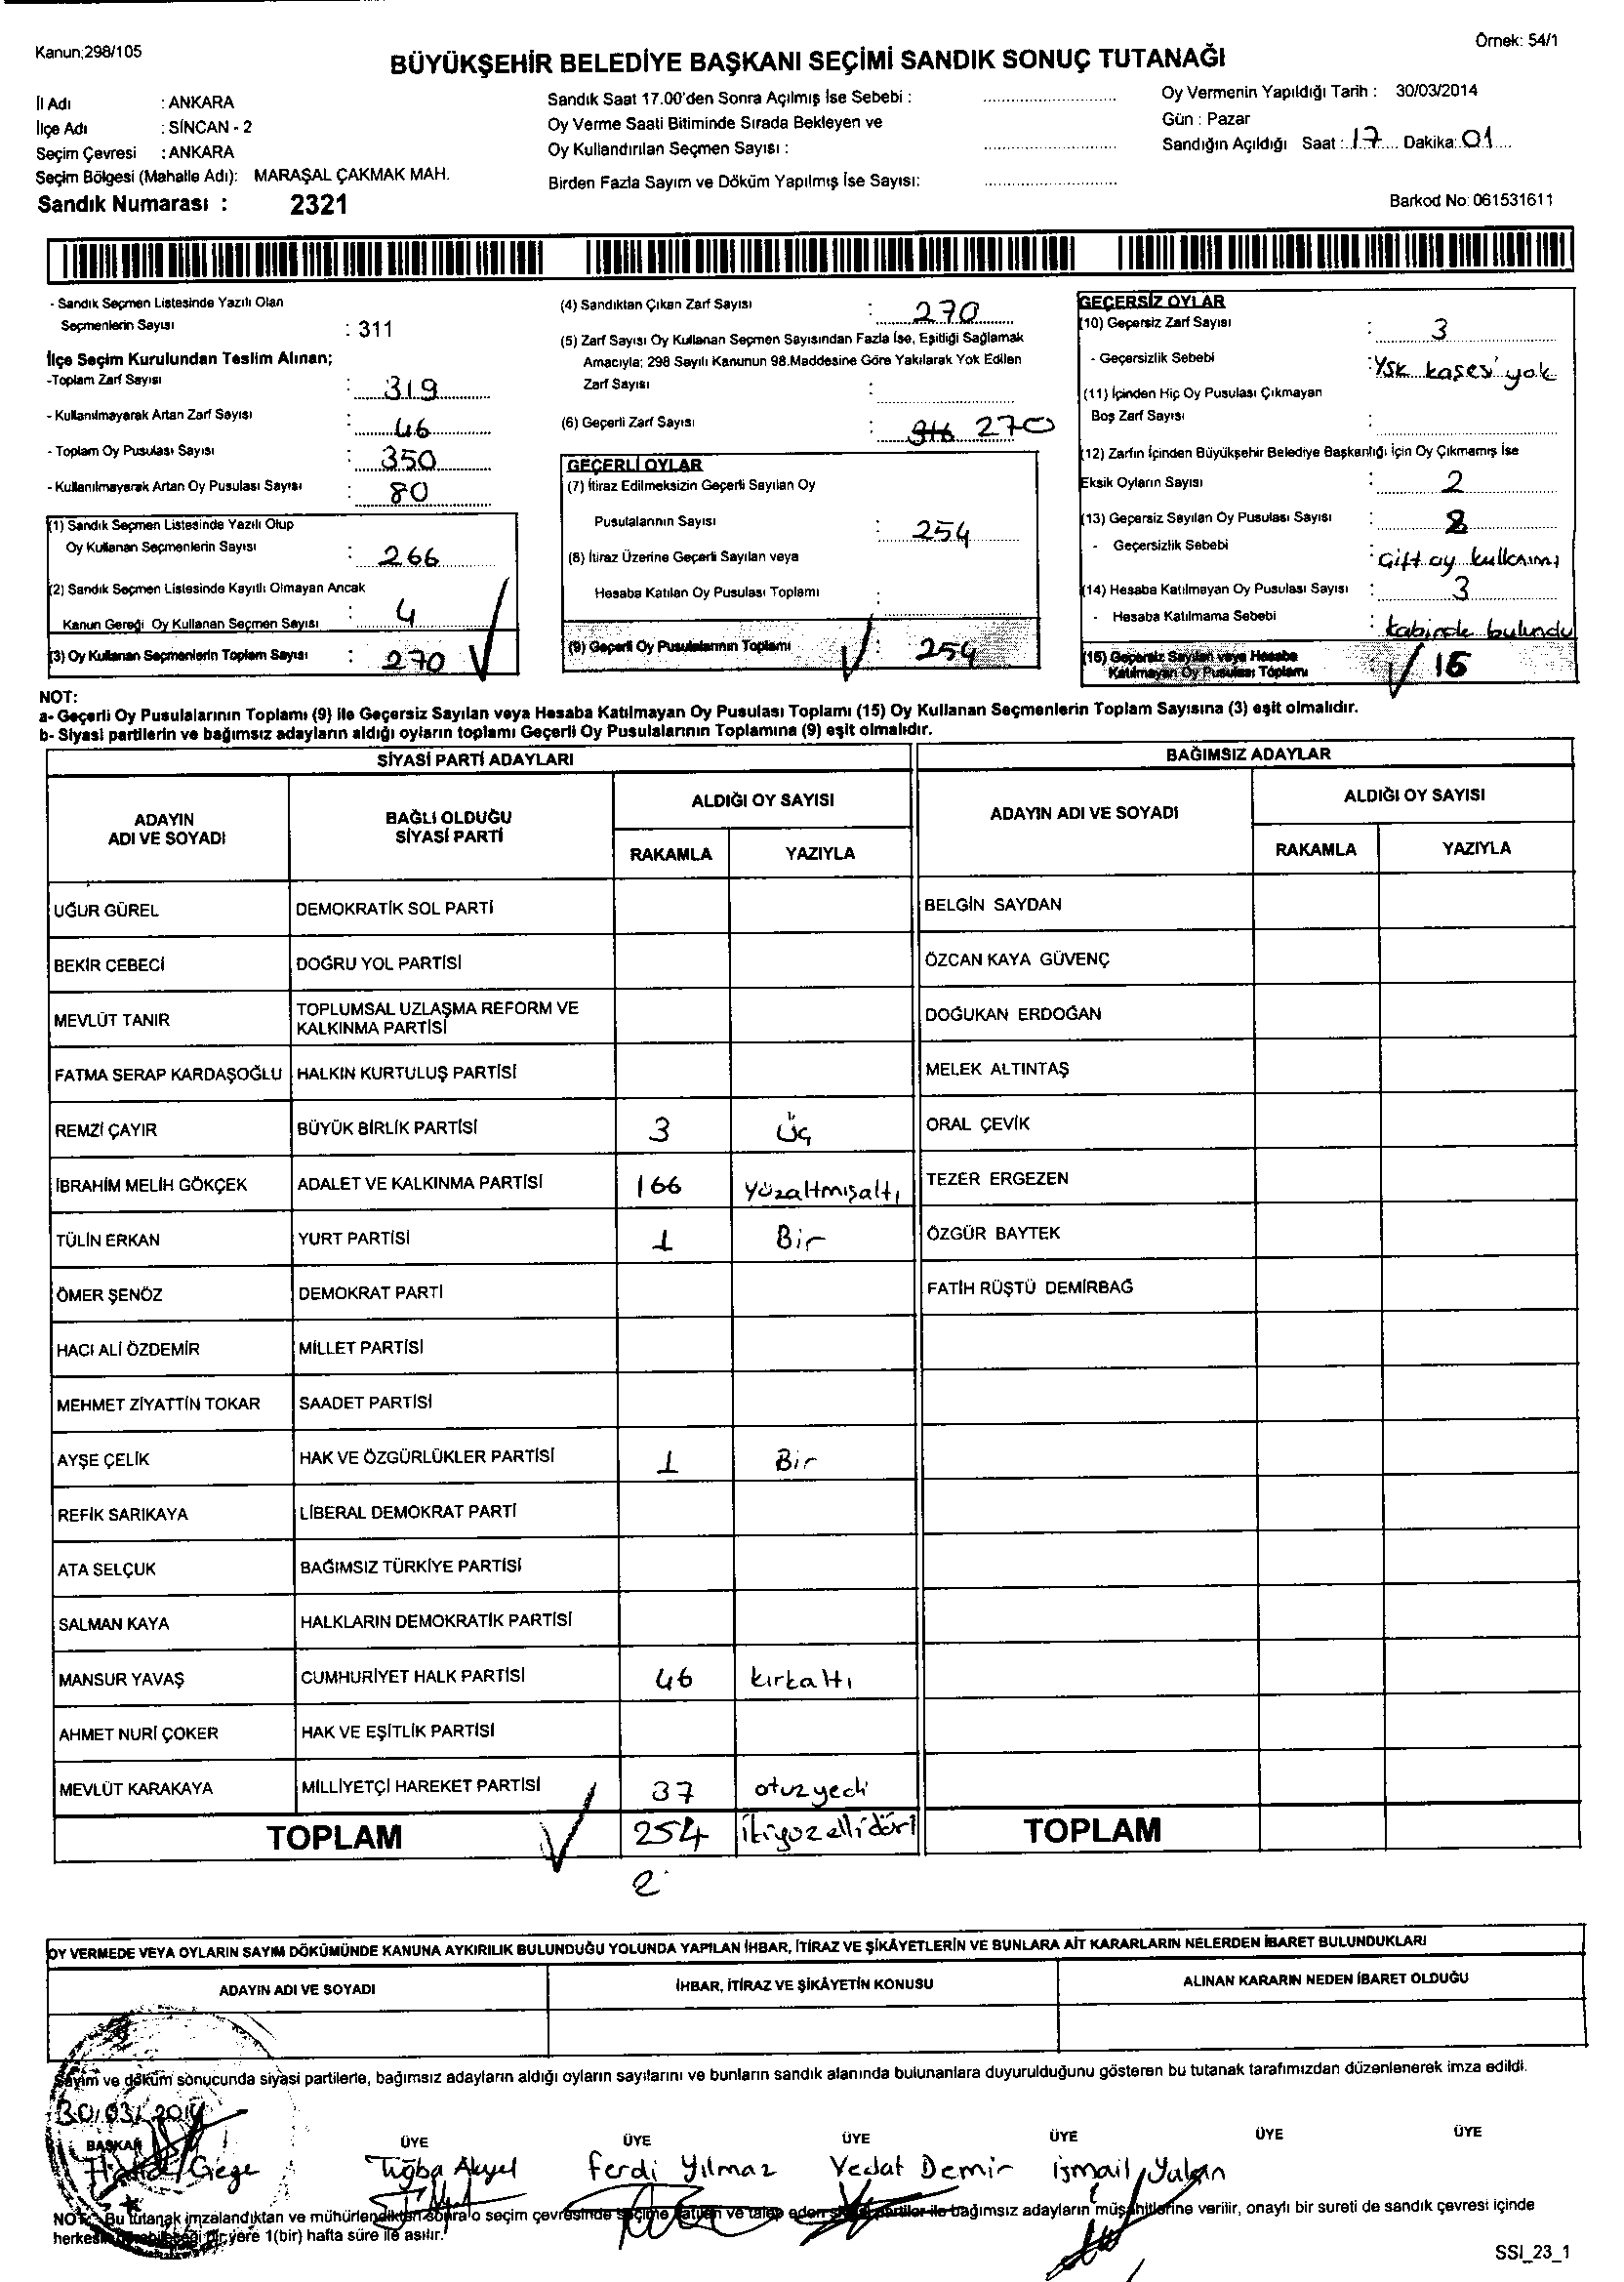 Kanun;298/105
Örnek: 54/1
BÜYÜKŞEHİR BELEDİYE BAŞKANI SEÇİMİ SANDIK SONUÇ TUTANAĞI
İl Adı : ANKARA
İlçe Adı : SİNCAN - 2
Seçim Çevresi : ANKARA
Seçim Bölgesi (Mahalle Adı): MARAŞAL ÇAKMAK MAH.
Sandık Numarası : 2321
Sandık Saat 17.00'den Sonra Açılmış İse Sebebi :
Oy Verme Saati Bitiminde Sırada Bekleyen ve
Oy Kullandırılan Seçmen Sayısı :
Birden Fazla Sayım ve Döküm Yapılmış İse Sayısı:
Oy Vermenin Yapıldığı Tarih : 30/03/2014
Gün : Pazar
Sandığın Açıldığı Saat : 17 Dakika: 01
Barkod No: 061531611
- Sandık Seçmen Listesinde Yazılı Olan
Seçmenlerin Sayısı : 311
İlçe Seçim Kurulundan Teslim Alınan;
-Toplam Zarf Sayısı : 319
- Kullanılmayarak Artan Zarf Sayısı : 46
- Toplam Oy Pusulası Sayısı : 350
- Kullanılmayarak Artan Oy Pusulası Sayısı : 80
(1) Sandık Seçmen Listesinde Yazılı Olup
Oy Kullanan Seçmenlerin Sayısı : 266
(2) Sandık Seçmen Listesinde Kayıtlı Olmayan Ancak
Kanun Gereği Oy Kullanan Seçmen Sayısı : 4
(3) Oy Kullanan Seçmenlerin Toplam Sayısı : 270
(4) Sandıktan Çıkan Zarf Sayısı : 270
(5) Zarf Sayısı Oy Kullanan Seçmen Sayısından Fazla İse, Eşitliği Sağlamak
Amacıyla; 298 Sayılı Kanunun 98.Maddesine Göre Yakılarak Yok Edilen
Zarf Sayısı :
(6) Geçerli Zarf Sayısı : 270
GEÇERLİ OYLAR
(7) İtiraz Edilmeksizin Geçerli Sayılan Oy
Pusulalarının Sayısı : 254
(8) İtiraz Üzerine Geçerli Sayılan veya
Hesaba Katılan Oy Pusulası Toplamı :
(9) Geçerli Oy Pusulalarının Toplamı : 254
GEÇERSİZ OYLAR
(10) Geçersiz Zarf Sayısı : 3
- Geçersizlik Sebebi : YSK kaşesi yok
(11) İçinden Hiç Oy Pusulası Çıkmayan
Boş Zarf Sayısı :
(12) Zarfın İçinden Büyükşehir Belediye Başkanlığı İçin Oy Çıkmamış İse
Eksik Oyların Sayısı : 2
(13) Geçersiz Sayılan Oy Pusulası Sayısı : 8
- Geçersizlik Sebebi : Çift oy kullanımı
(14) Hesaba Katılmayan Oy Pusulası Sayısı : 3
- Hesaba Katılmama Sebebi : kabinde bulundu
(15) Geçersiz Sayılan veya Hesaba
Katılmayan Oy Pusulası Toplamı 16
NOT:
a- Geçerli Oy Pusulalarının Toplamı (9) ile Geçersiz Sayılan veya Hesaba Katılmayan Oy Pusulası Toplamı (15) Oy Kullanan Seçmenlerin Toplam Sayısına (3) eşit olmalıdır.
b- Siyasi partilerin ve bağımsız adayların aldığı oyların toplamı Geçerli Oy Pusulalarının Toplamına (9) eşit olmalıdır.
SİYASİ PARTİ ADAYLARI
BAĞIMSIZ ADAYLAR
ADAYIN ADI VE SOYADI
BAĞLI OLDUĞU SİYASİ PARTİ
ALDIĞI OY SAYISI
RAKAMLA YAZIYLA
ADAYIN ADI VE SOYADI
ALDIĞI OY SAYISI
RAKAMLA YAZIYLA
UĞUR GÜREL DEMOKRATİK SOL PARTİ BELGİN SAYDAN
BEKİR CEBECİ DOĞRU YOL PARTİSİ ÖZCAN KAYA GÜVENÇ
MEVLÜT TANIR TOPLUMSAL UZLAŞMA REFORM VE KALKINMA PARTİSİ DOĞUKAN ERDOĞAN
FATMA SERAP KARDAŞOĞLU HALKIN KURTULUŞ PARTİSİ MELEK ALTINTAŞ
REMZİ ÇAYIR BÜYÜK BİRLİK PARTİSİ 3 Üç ORAL ÇEVİK
İBRAHİM MELİH GÖKÇEK ADALET VE KALKINMA PARTİSİ 166 Yüzaltmışaltı TEZER ERGEZEN
TÜLİN ERKAN YURT PARTİSİ 1 Bir ÖZGÜR BAYTEK
ÖMER ŞENÖZ DEMOKRAT PARTİ FATİH RÜŞTÜ DEMİRBAĞ
HACI ALİ ÖZDEMİR MİLLET PARTİSİ
MEHMET ZİYATTİN TOKAR SAADET PARTİSİ
AYŞE ÇELİK HAK VE ÖZGÜRLÜKLER PARTİSİ 1 Bir
REFİK SARIKAYA LİBERAL DEMOKRAT PARTİ
ATA SELÇUK BAĞIMSIZ TÜRKİYE PARTİSİ
SALMAN KAYA HALKLARIN DEMOKRATİK PARTİSİ
MANSUR YAVAŞ CUMHURİYET HALK PARTİSİ 46 kırkaltı
AHMET NURİ ÇOKER HAK VE EŞİTLİK PARTİSİ
MEVLÜT KARAKAYA MİLLİYETÇİ HAREKET PARTİSİ 37 otuzyedi
TOPLAM 254 ikiyüzellidört TOPLAM
OY VERMEDE VEYA OYLARIN SAYIM DÖKÜMÜNDE KANUNA AYKIRILIK BULUNDUĞU YOLUNDA YAPILAN İHBAR, İTİRAZ VE ŞİKÂYETLERİN VE BUNLARA AİT KARARLARIN NELERDEN İBARET BULUNDUKLARI
ADAYIN ADI VE SOYADI İHBAR, İTİRAZ VE ŞİKÂYETİN KONUSU ALINAN KARARIN NEDEN İBARET OLDUĞU
Sayım ve döküm sonucunda siyasi partilerle, bağımsız adayların aldığı oyların sayılarını ve bunların sandık alanında bulunanlara duyurulduğunu gösteren bu tutanak tarafımızdan düzenlenerek imza edildi.
30/03/2014
BAŞKAN ÜYE ÜYE ÜYE ÜYE ÜYE ÜYE
Tuğba Akyel Ferdi Yılmaz Vedat Demir ismail Yalçın
NOT: Bu tutanak imzalandıktan ve mühürlendikten sonra o seçim çevresinde seçime katılan ve talep eden siyasi partiler ile bağımsız adayların müşahitlerine verilir, onaylı bir sureti de sandık çevresi içinde
bir yere 1(bir) hafta süre ile asılır.
SSI_23_1